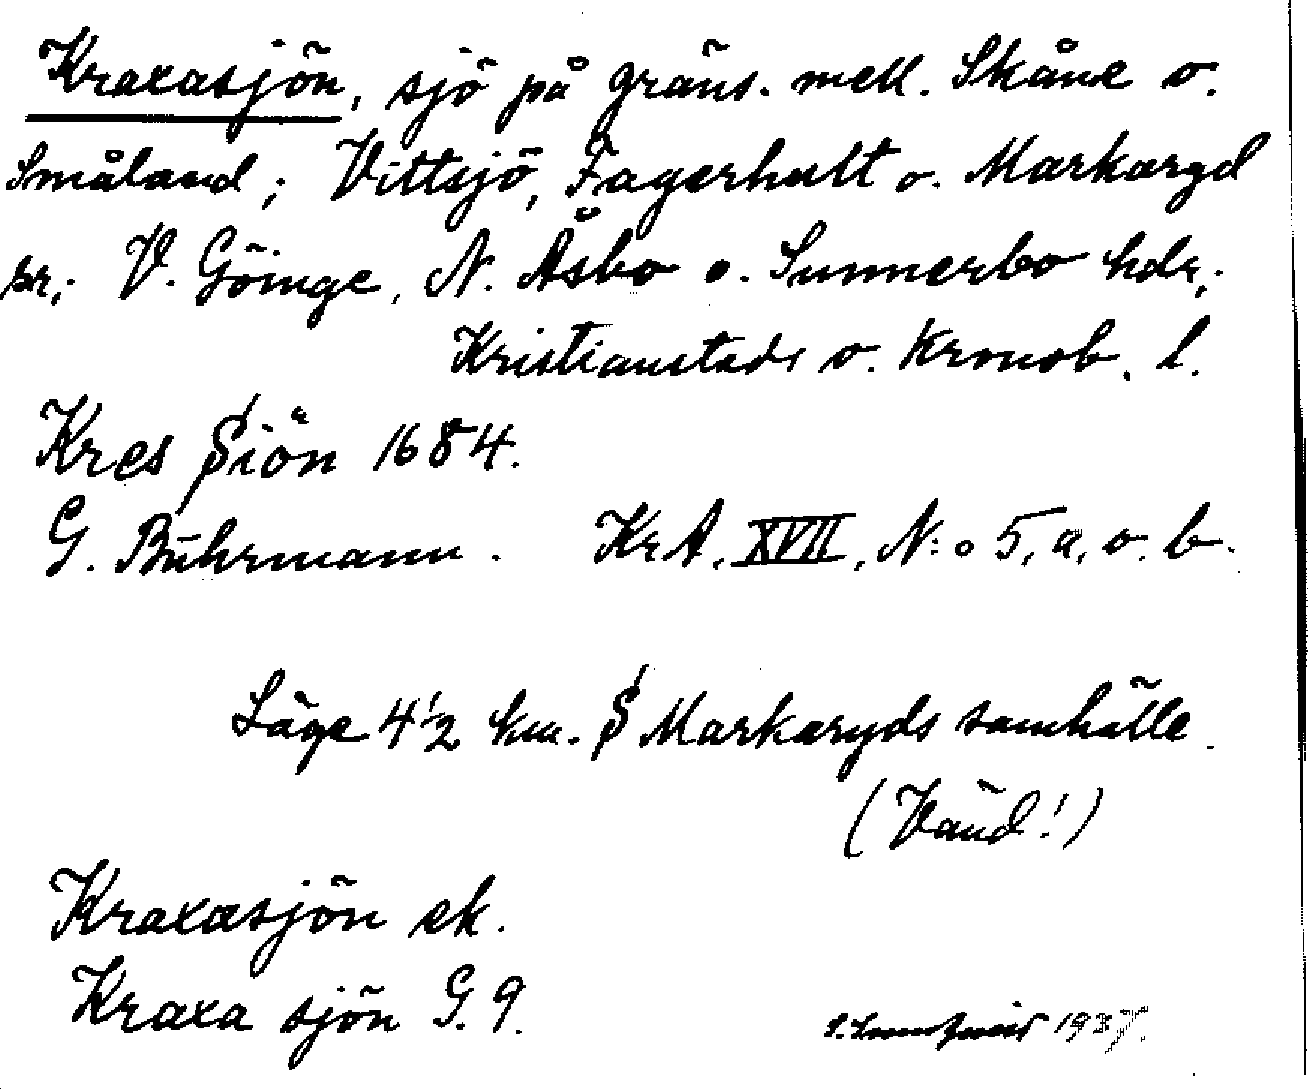 Kraxasjön, sjö på gräns. mell. Skåne o.
Småland; Vittsjö, Fagerhult o. Markaryd
sr; V. Göinge, N. Åsbo o. Sunnerbo hdr;
Kristianstads o. Kronob. l.
Kres Siön 1684.
G. Buhrmann. KrA. XVII, N:o 5, a, o. b.
Läge 4½ km. S Markaryds samhälle.
(Vänd!)
Kraxasjön ek.
Kraxa sjön G. 9.
1937.